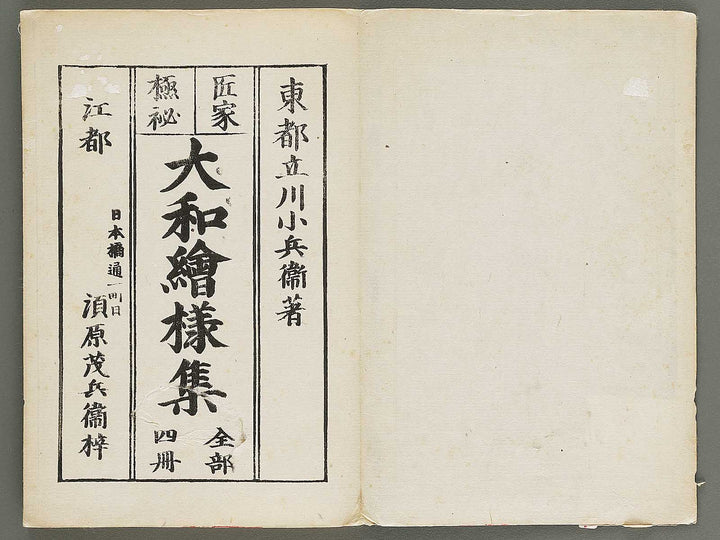 東都立川小兵衞著
匠家
極祕
大和繪樣集
全部
四冊
江都
日本橋通一町目
須原茂兵衞梓